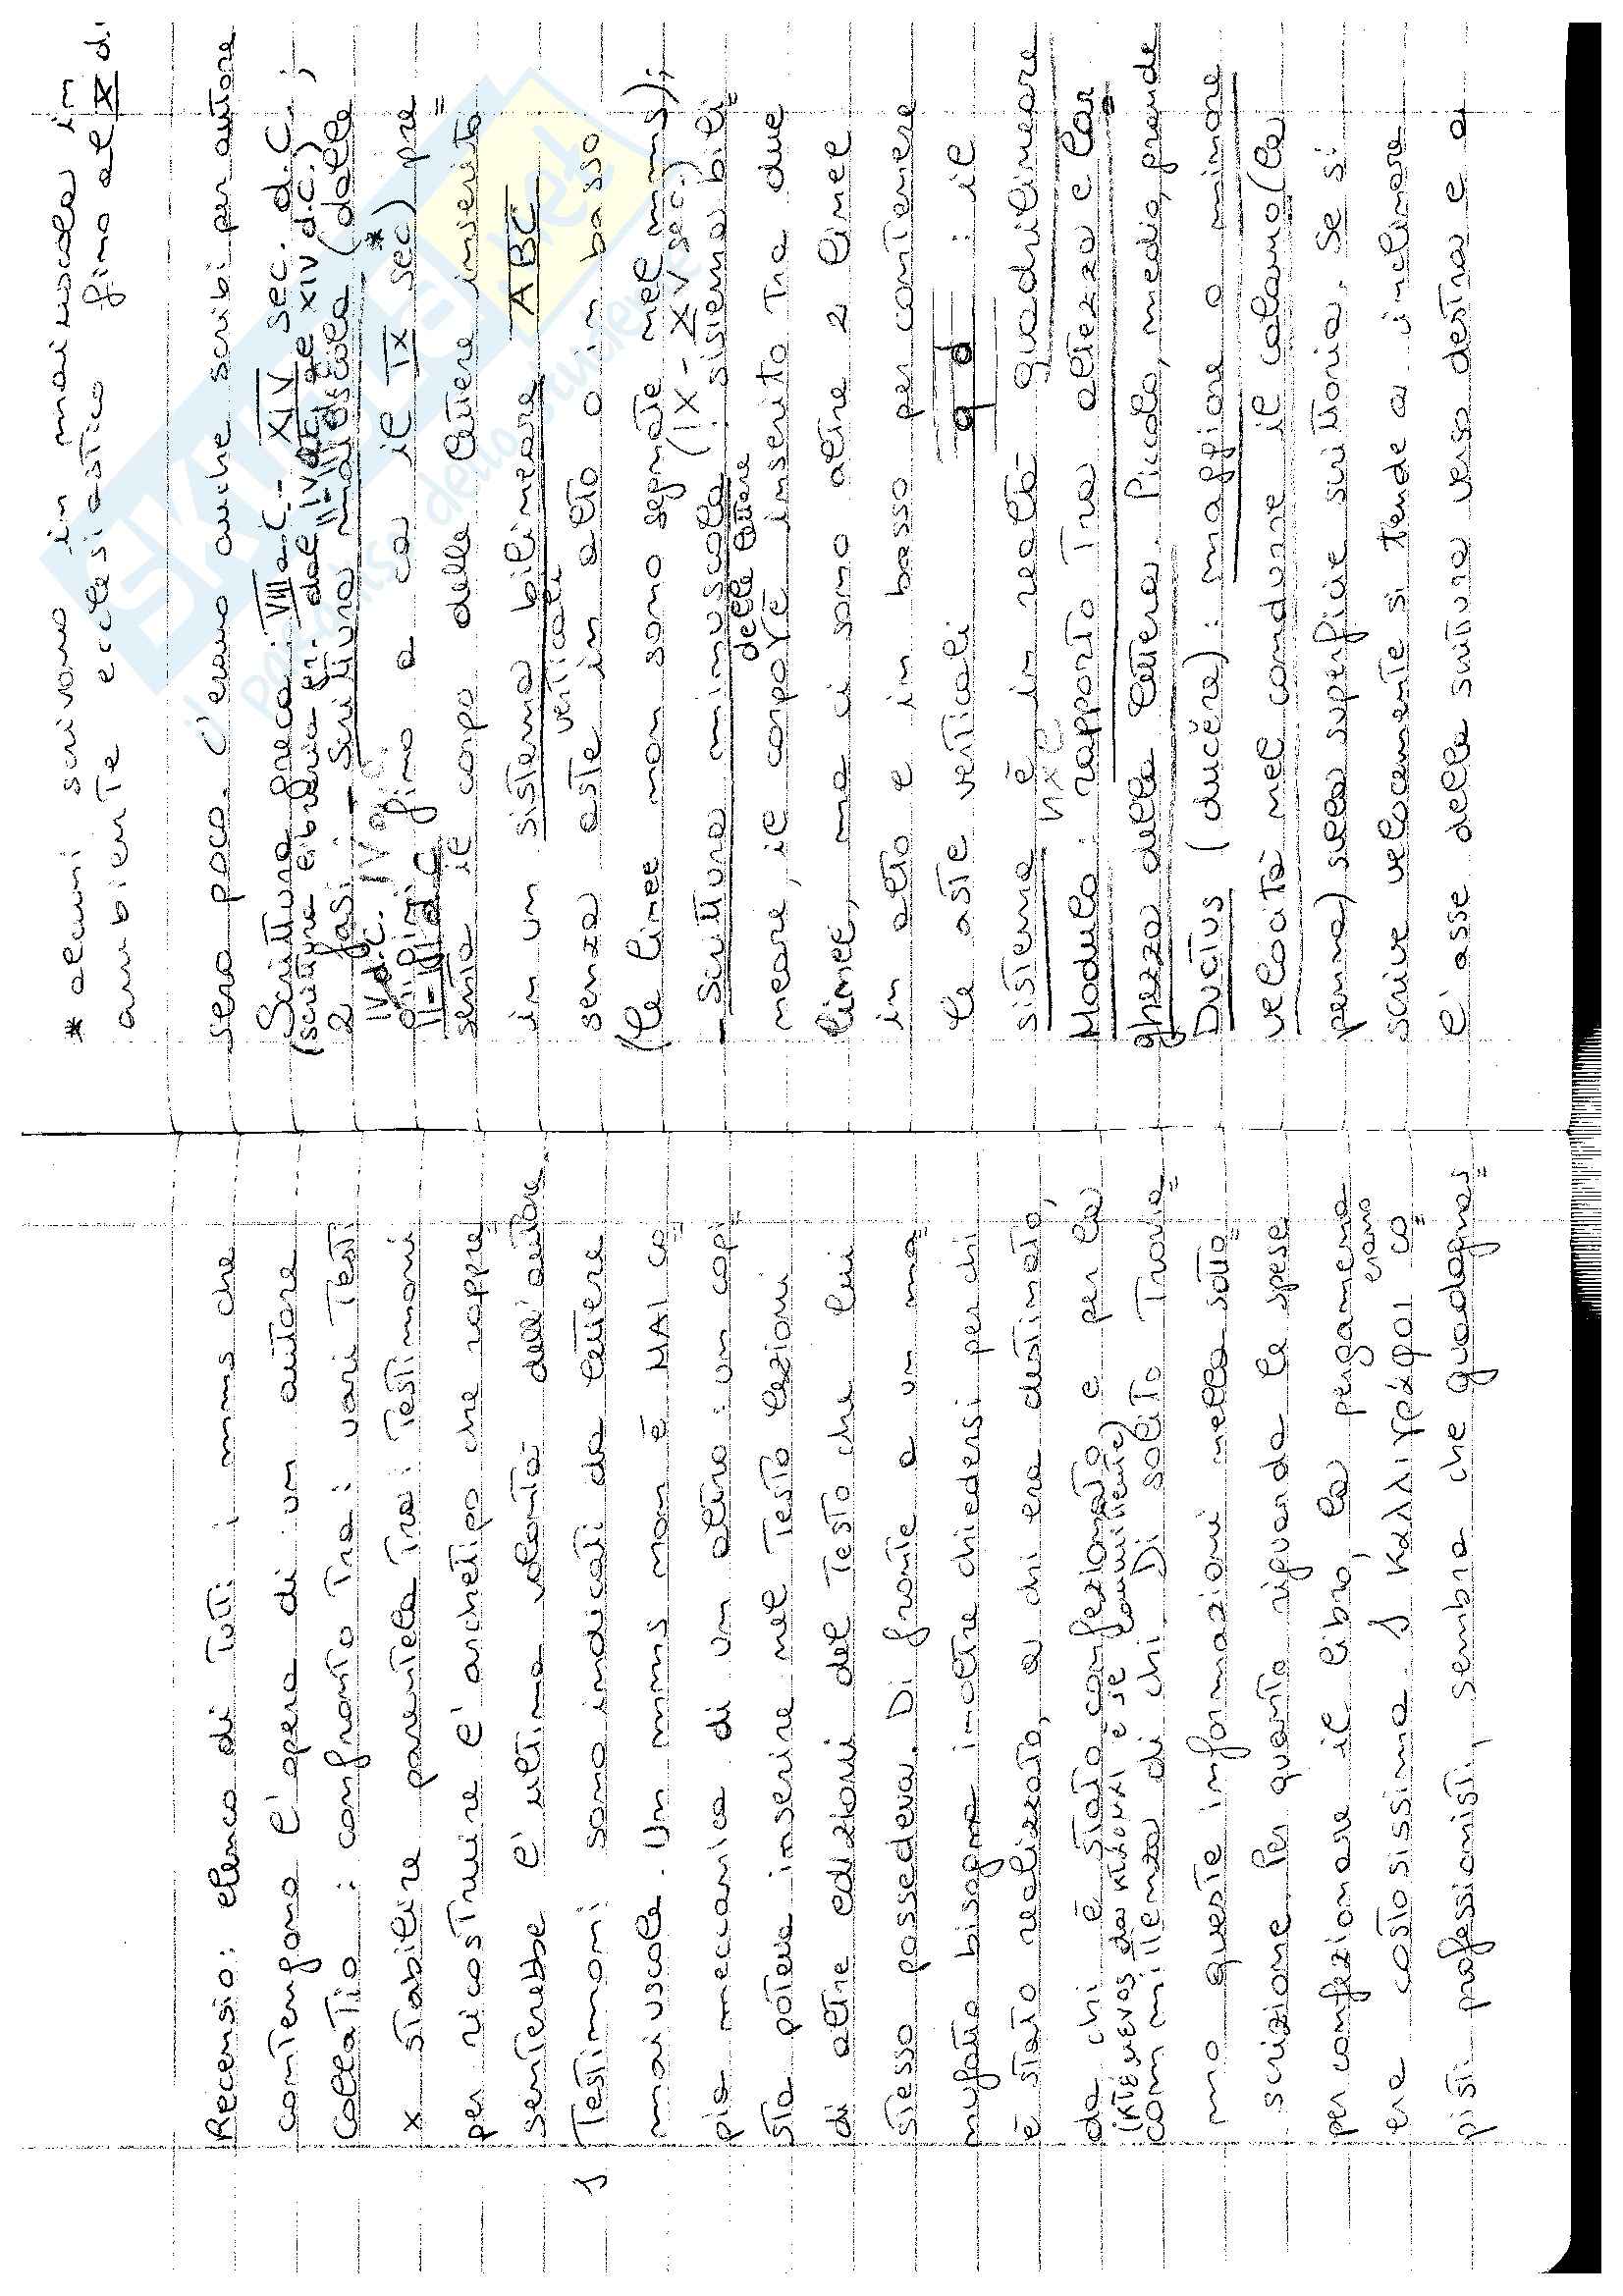 Recensio: elenco di tutti i mns che
contengono l'opera di un autore
Collatio : confronto tra : vari testi
x stabilire parentela tra : testimoni
per ricostruire l'archetipo che rappre=
senterebbe l'ultima volontà dell'autore.
I Testimoni sono indicati da lettere
maiuscole. Un mns non è MAI co=
pia meccanica di un altro : un copi=
sta poteva inserire nel testo lezioni
di altre edizioni del testo che lui
stesso possedeva. Di fronte a un ma=
nufatto bisogna inoltre chiedersi per chi
è stato realizzato, a chi era destinato,
da chi è stato confezionato e per la
(κτέανος da κτάομαι e se committente)
committenza di chi. Di solito trovia=
mo queste informazioni nella sotto=
scrizione. Per quanto riguarda le spese
per confezionare il libro, la pergamena
era costosissima. I καλλιγράφοι erano co=
pisti professionisti, sembra che guadagnas=
* alcuni scrivono in maiuscola in
ambiente ecclesiastico fino al X d.
sero poco. C'erano anche scribi per autore
Scrittura greca: VIII a.C. - XIV sec. d.C.;
(scrittura libraria gr. dal IV a.C. al XIV d.C.)
2 fasi - Scrittura maiuscola (dalle
origini fino a ca il IX sec)* pre=
senta il corpo delle lettere inserito
in un sistema bilineare ABC
senza aste verticali in alto o in basso
(le linee non sono segnate nel mns);
- Scrittura minuscola (IX - XV sec.) : sistema bili=
neare, il corpo delle lettere è inserito tra due
linee, ma ci sono altre 2 linee
in alto e in basso per contenere
le aste verticali q d : il
sistema è in realtà quadrilineare
Modulo: rapporto tra altezza e lar=
ghezza delle lettera. Piccolo, medio, grande
Ductus (ducĕre) : maggiore o minore
velocità nel condurre il calamo (la
penna) sulla superficie scrittoria. Se si
scrive velocemente si tende a inclinare
l'asse della scrittura verso destra e a